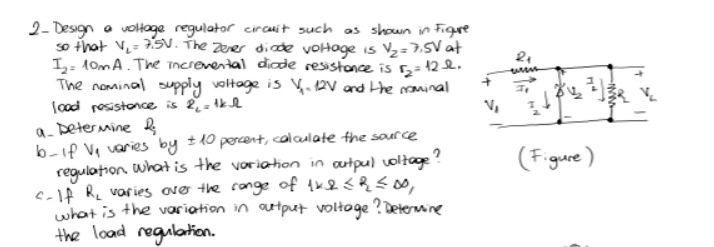 2- Design a voltage regulator circuit such as shown in Figure
so that V_L = 7.5V. The Zener diode voltage is V_Z = 7.5V at
I_Z = 10mA. The incremental diode resistance is r_Z = 12 Ω.
The nominal supply voltage is V_1 = 12V and the nominal
load resistance is R_L = 1kΩ
a- Determine R_1
b- if V_1 varies by ±10 percent, calculate the source
regulation. What is the variation in output voltage?
c- If R_L varies over the range of 1kΩ ≤ R_L ≤ ∞,
what is the variation in output voltage? Determine
the load regulation.
R_1
+
I_1
V_1
I_Z
V_Z
I_L
R_L
+
V_L
-
-
(Figure)